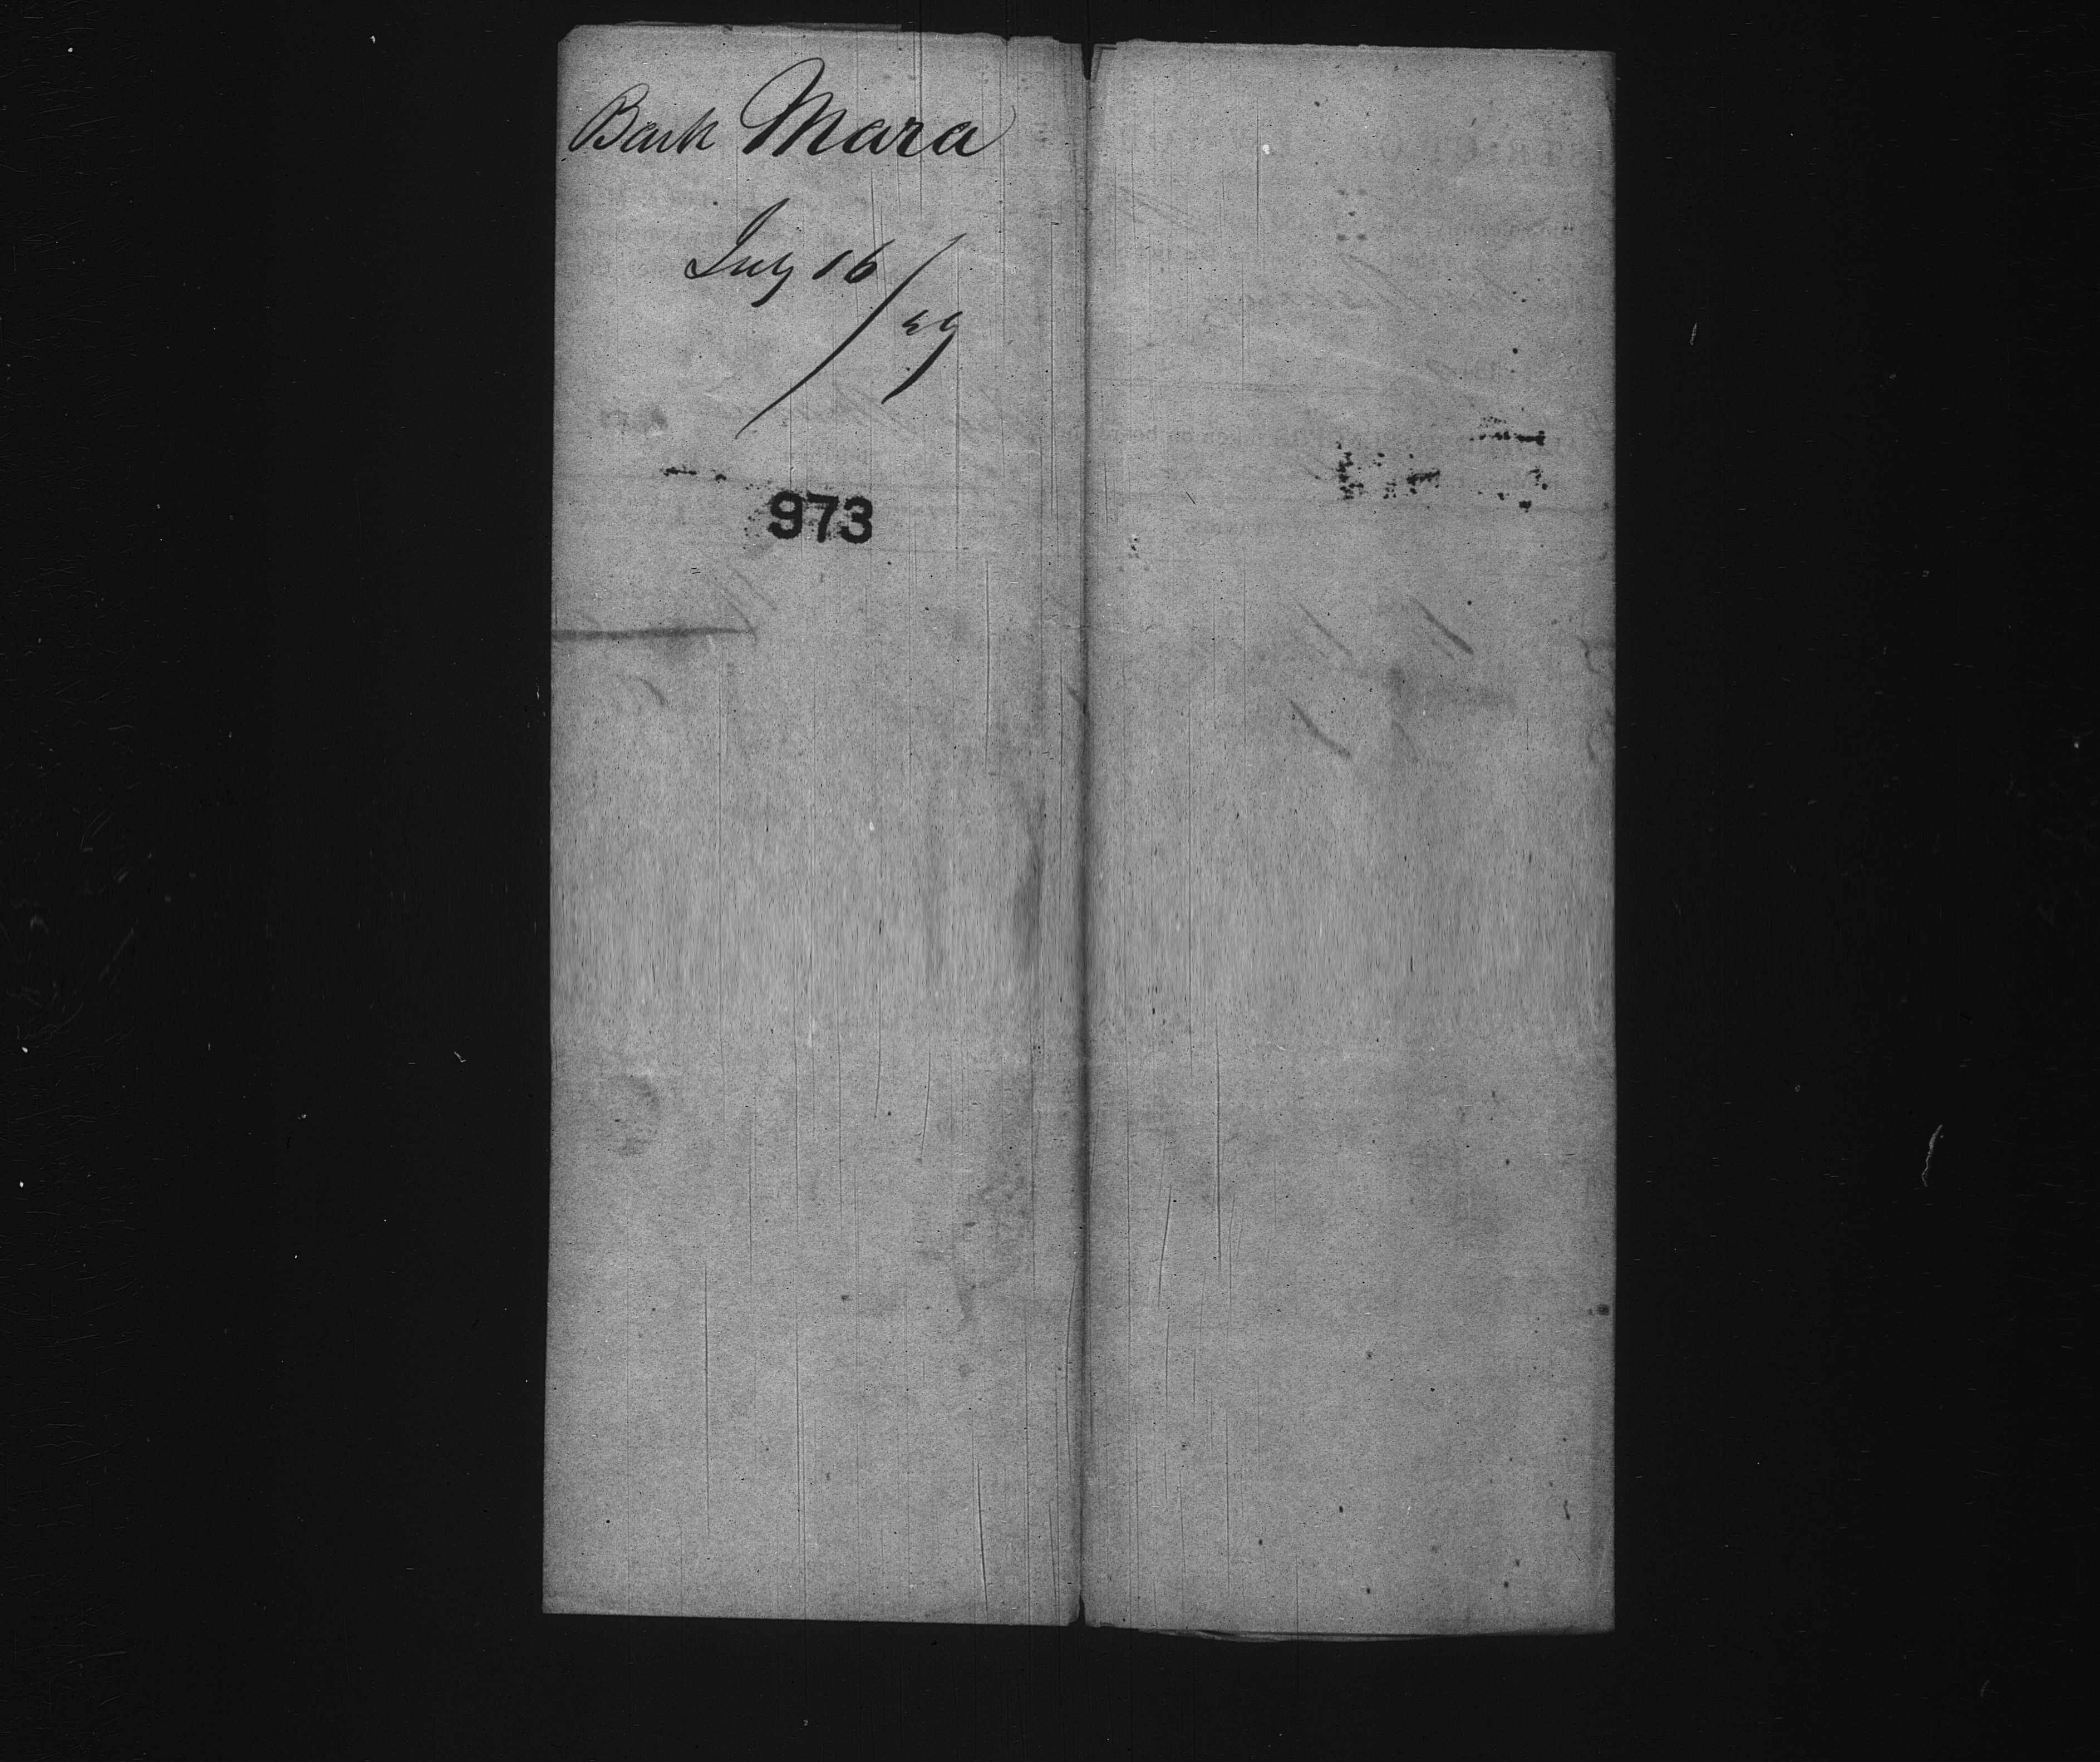 Bark Mara
July 16/39
973